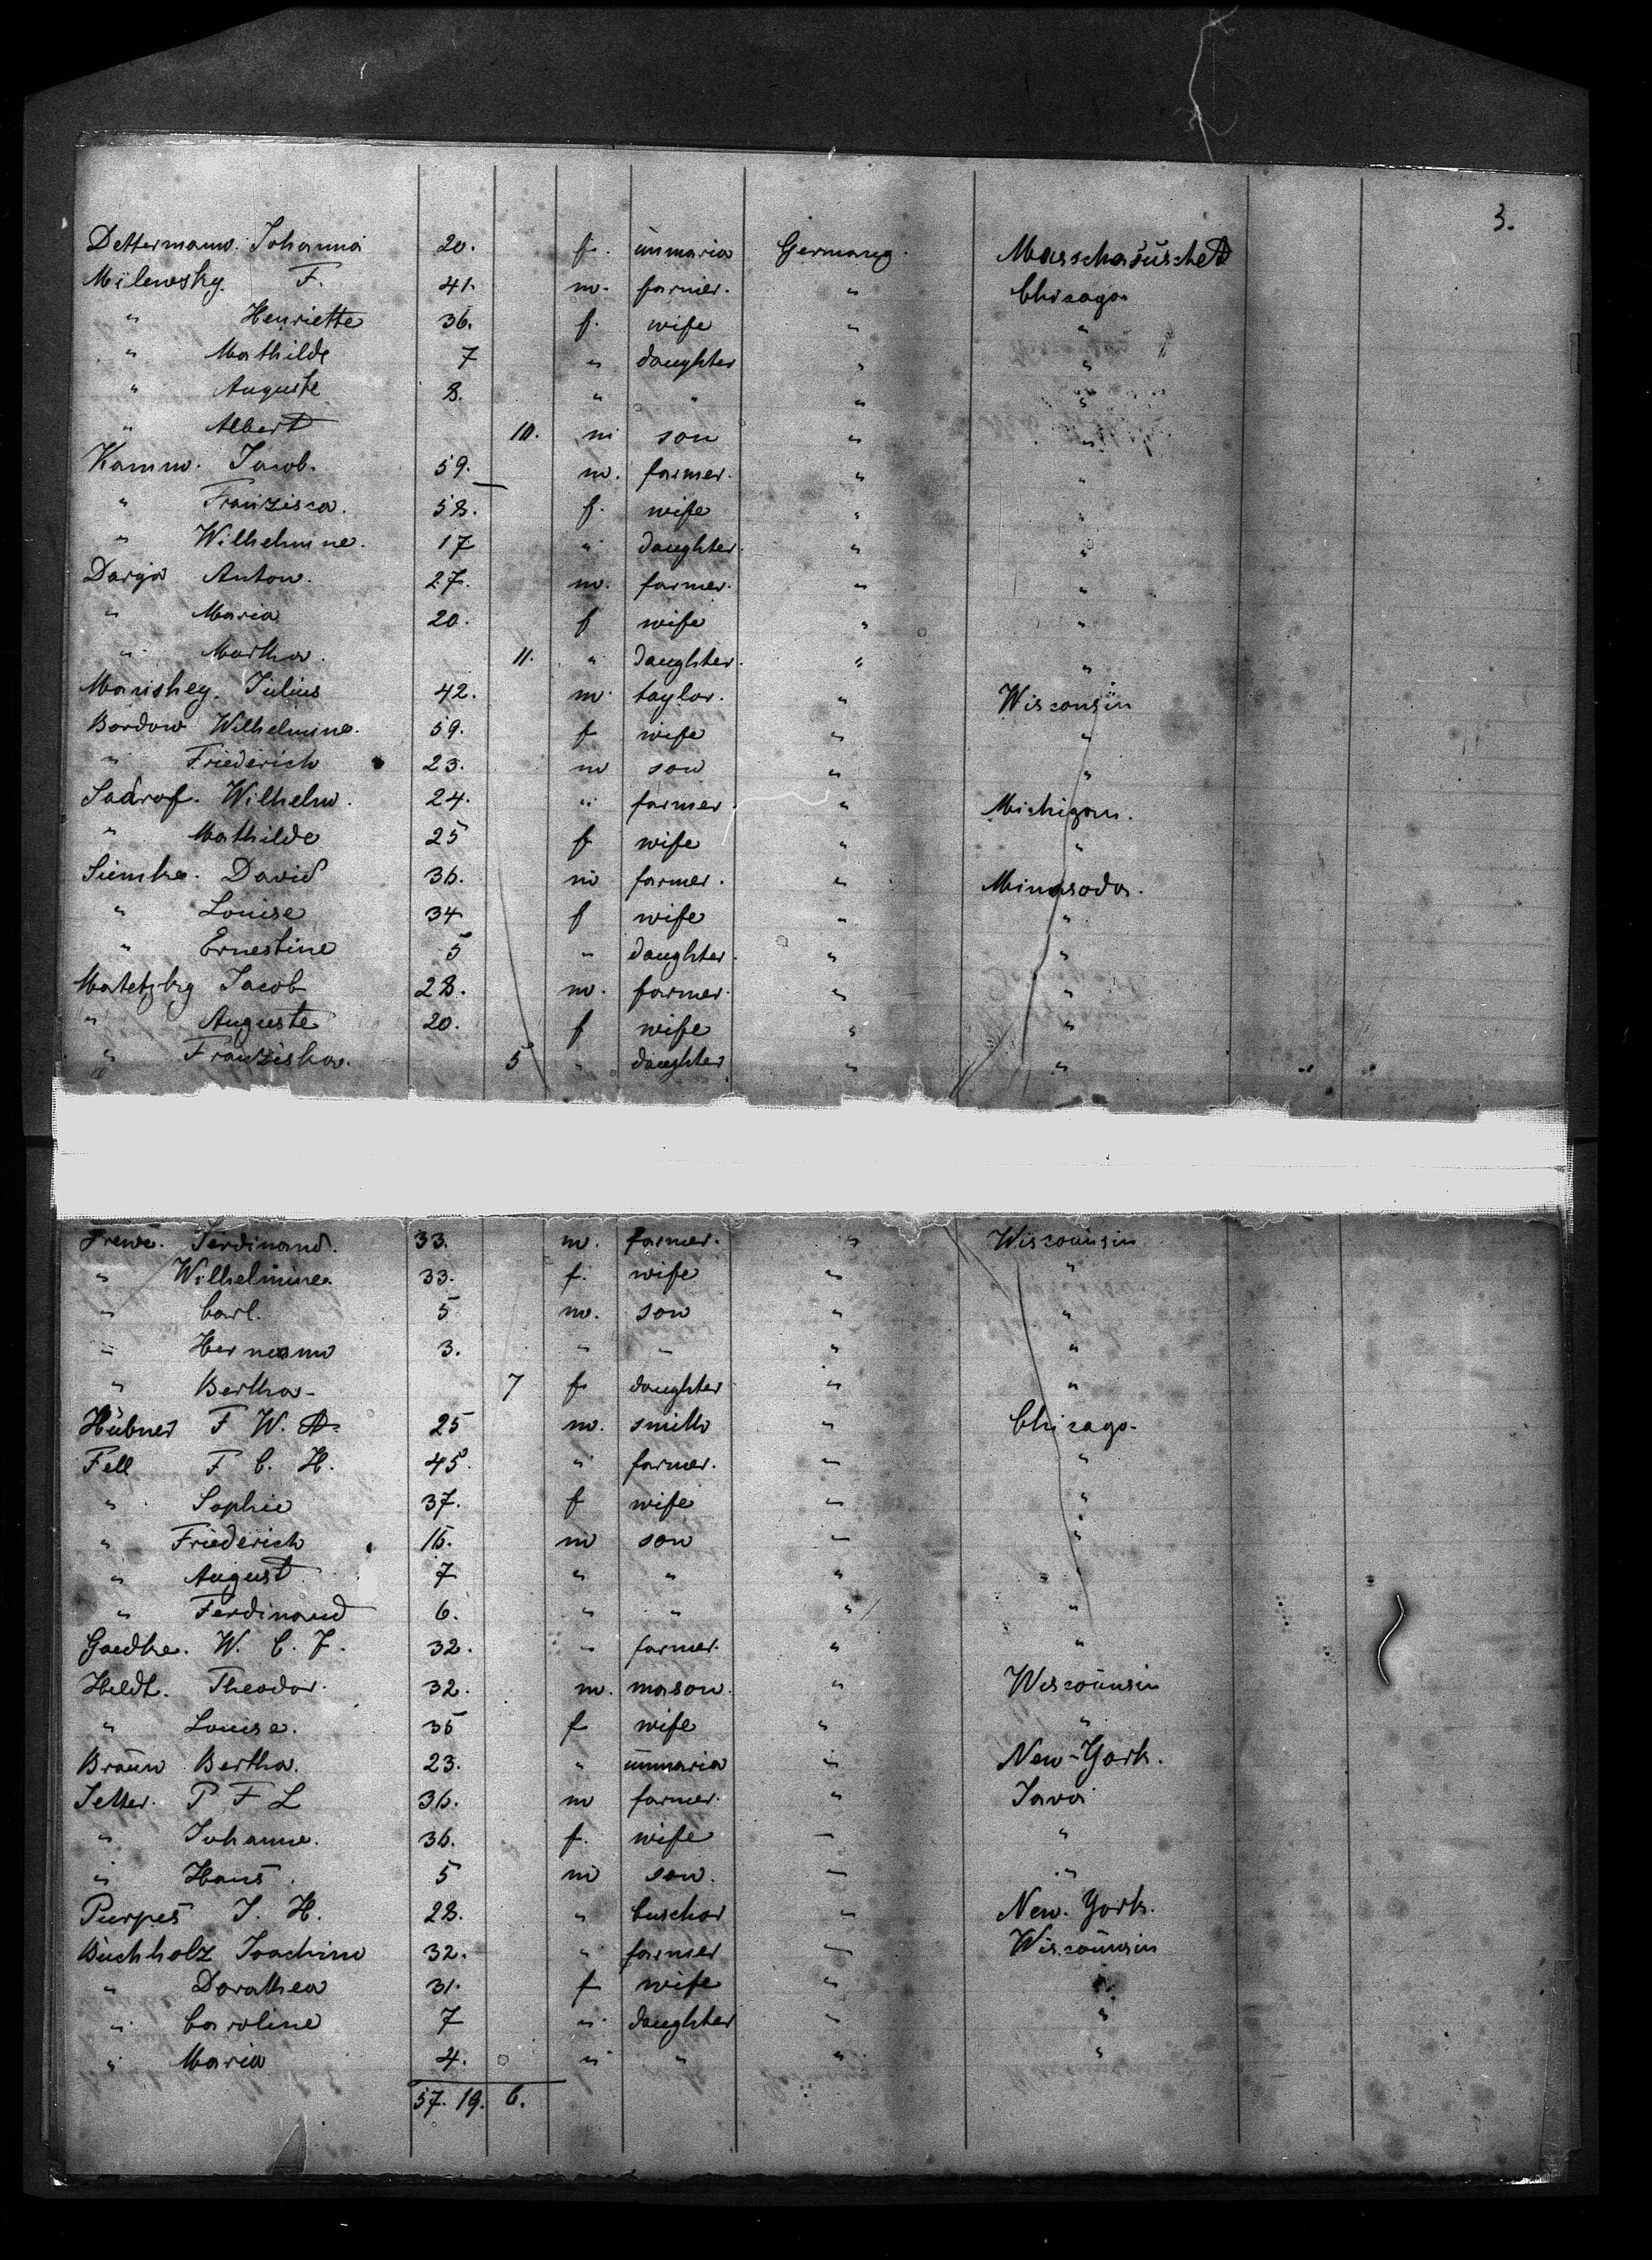 3.
Dettermann. Johanna 20. f. unmaria Germany. Masschasuschett
Milewsky. F. 41. m. farmer. " Chicago
" Henriette 36. f. wife " "
" Mathilde 7 " daughter " "
" Auguste 8. " " " "
" Albert 10. m son " "
Kamm. Jacob. 59. m. farmer. " "
" Franzisca. 58. f. wife " "
" Wilhelmine. 17 " daughter. " "
Darga Anton. 27. m. farmer. " "
" Maria 20. f wife " "
" Martha. 11. " daughter. " "
Manskey. Julius 42. m. taylor. " Wisconsin
Bordow Wilhelmine. 59. f wife " "
" Friederich 23. m son " "
Sadrof. Wilhelm. 24. " farmer " Michigan.
" Mathilde 25 f wife " "
Siemke. David 36. m farmer. " Minasoda.
" Louise 34 f wife " "
" Ernestine 5 " daughter. " "
Matetzky Jacob 28. m. farmer. " "
" Auguste 20. f wife " "
" Franziska. 5 " daughter " "
Ferdinand. 33. m. farmer. " Wisconsin
" Wilhelmine. 33. f. wife " "
" Carl. 5 m. son " "
" Hermann 3. " " " "
" Bertha 7 f daughter " "
Hübner F W. A 25 m. smith " Chicago.
Fell F C. H. 45. " farmer. " "
" Sophie 37. f wife " "
" Friederich 16. m son " "
" August 7 " " " "
" Ferdinand 6. " " " "
Gaedke. W. C. F. 32. " farmer. " "
Heldt. Theodor. 32. m. mason. " Wisconsin
" Louise. 35 f wife " "
Braun Bertha. 23. " unmaria " New-York.
Jetter. P F L 36. m farmer. " Java
" Johanne. 36. f. wife " "
" Hans. 5 m son. " "
Purpes J. H. 28. " buschor " New-York.
Buchholz Joachim 32. " farmer " Wisconsin
" Dorathea 31. f wife " "
" Caroline 7 " daughter " "
" Maria 4. " " " "
57. 19. 6.